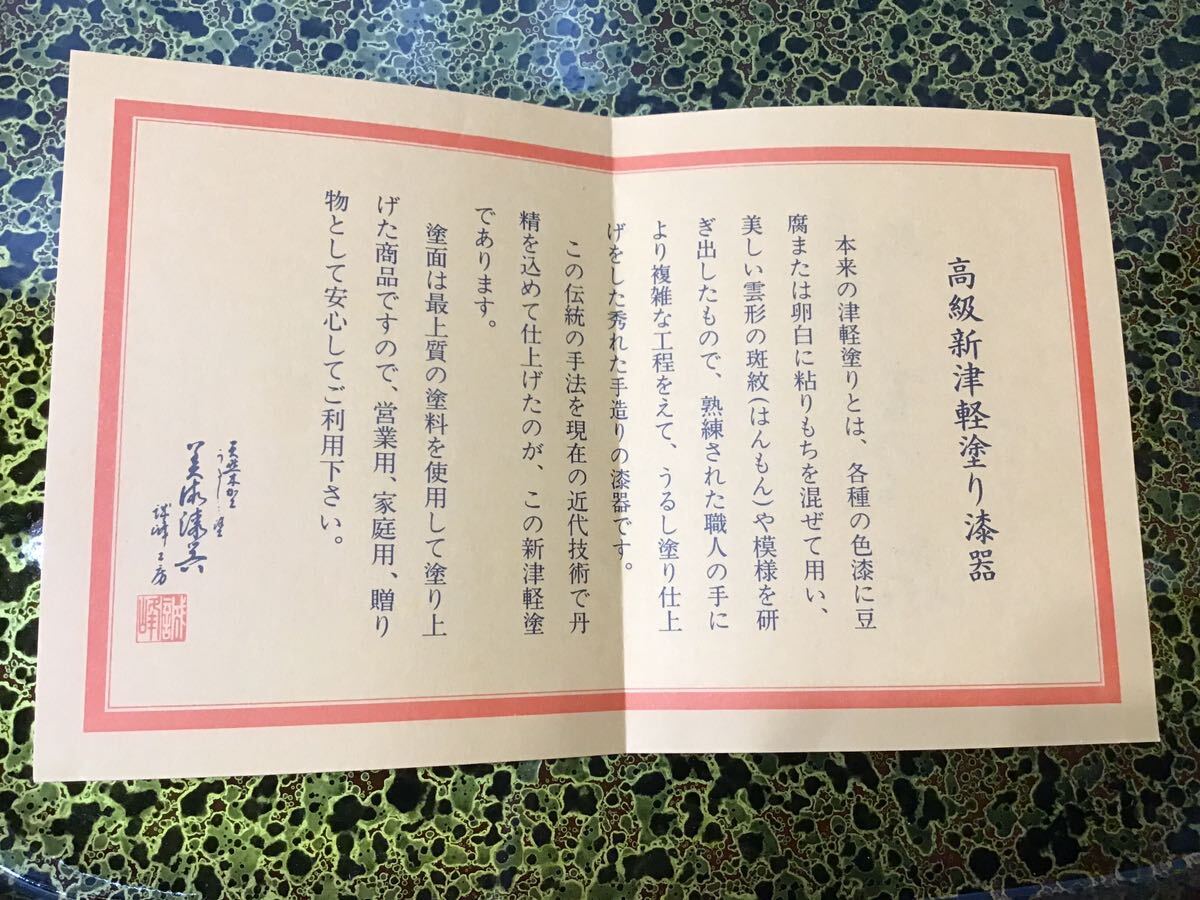 高級新津軽塗り漆器
本来の津軽塗りとは、各種の色漆に豆
腐または卵白に粘りもちを混ぜて用い、
美しい雲形の斑紋(はんもん)や模様を研
ぎ出したもので、熟練された職人の手に
より複雑な工程をえて、うるし塗り仕上
げをした秀れた手造りの漆器です。
この伝統の手法を現在の近代技術で丹
精を込めて仕上げたのが、この新津軽塗
であります。
塗面は最上質の塗料を使用して塗り上
げた商品ですので、営業用、家庭用、贈り
物として安心してご利用下さい。
誠峰